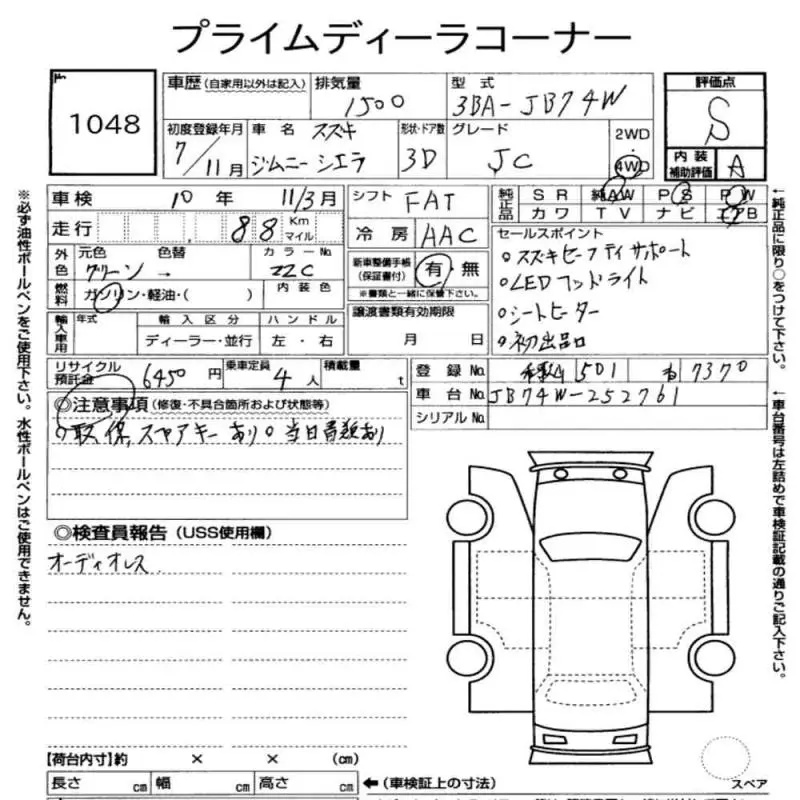 プライムディーラコーナー
1048
車歴(自家用以外は記入) 排気量 1500 型式 3BA-JB74W 評価点 S
初度登録年月 7/11月 車名 スズキ ジムニー シエラ 形状・ドア数 3D グレード JC 2WD 4WD 内装補助評価 A
車検 10年 11/3月 シフト FAT 純正品 SR 純AW PS PW
走行 88 Km マイル 冷房 AAC カワ TV ナビ エアB
外色 元色 グリーン → 色替 カラーNo. ZZC 新車整備手帳(保証書付) 有・無 ※書類と一緒に保管下さい。
セールスポイント
。スズキセーフティサポート
。LEDヘッドライト
。シートヒーター
。初出品
燃料 ガソリン・軽油・( ) 内装色
譲渡書類有効期限 月 日
輸入車用 年式 輸入区分 ハンドル
ディーラー・並行 左・右
リサイクル預託金 6450円 乗車定員 4人 積載量 t 登録No. 501 7370
車台No. JB74W-252761
シリアルNo.
◎注意事項(修復・不具合箇所および状態等)
。取、保、スペアキーあり。当日書類あり
◎検査員報告(USS使用欄)
オーディオレス
【荷台内寸】約 × × (cm)
長さ cm 幅 cm 高さ cm ←(車検証上の寸法)
スペア
※必ず油性ボールペンをご使用下さい。水性ボールペンはご使用できません。
←純正品に限り○をつけて下さい。
←車台番号は左詰めで車検証記載の通りご記入下さい。